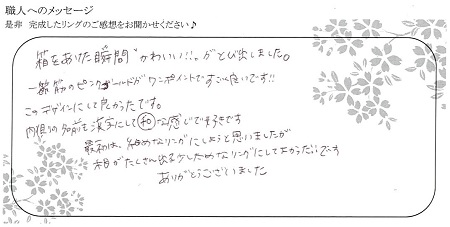 職人へのメッセージ
是非 完成したリングのご感想をお聞かせください♪
箱をあけた瞬間"かわいい!!"がとび出しました。
一筋のピンクゴールドがワンポイントですごく良いです!!
このデザインにして良かったです。
内側の名前も漢字にして和な感じで好きです
最初は、細めなリングにしようと思いましたが
柄がたくさん出る少しためなリングにしてよかったです
ありがとうございました